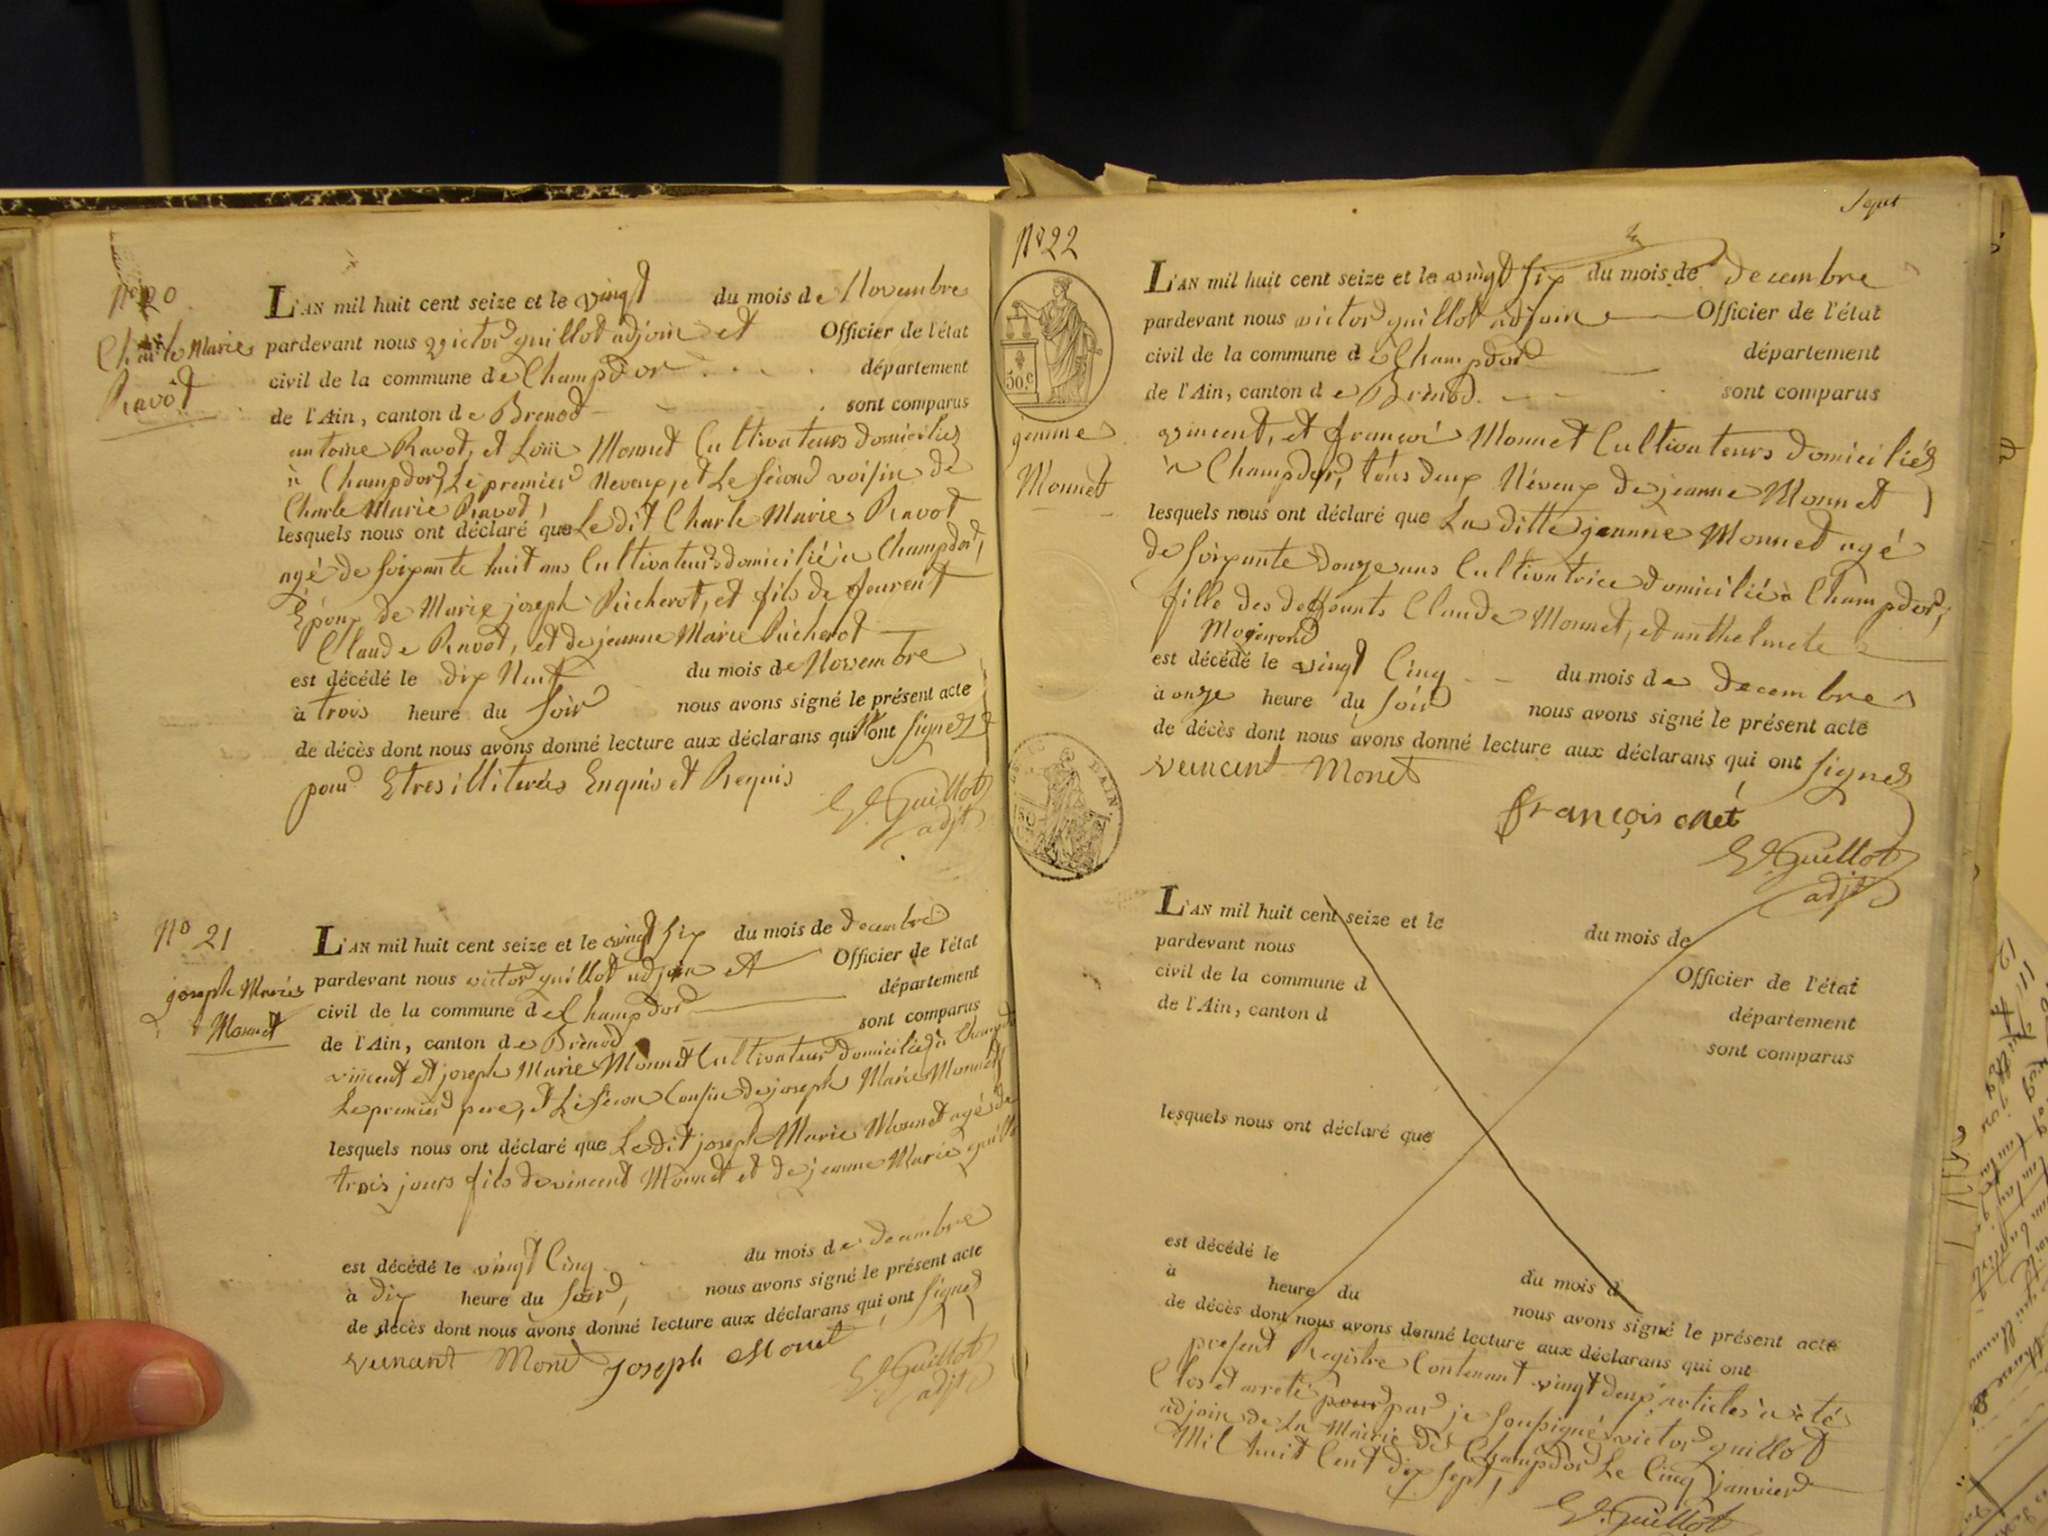 No 20
Charle Marie
Ravot
L'AN mil huit cent seize et le vingt du mois de Novembre
pardevant nous victor guillot adjoin et Officier de l'état
civil de la commune de Champdor département
de l'Ain, canton de Brenod sont comparus
antoine Ravot, et Loüi Monnet Cultivateurs domiciliés
à Champdor, Le premier Neveux, et Le second voisin de
Charle Marie Ravot,
lesquels nous ont déclaré que Le dit Charle Marie Ravot
agé de soixante huit ans Cultivateur domicilié à Champdor,
Époux de Marie joseph Richerot, et fils de feurent
Claude Ravot, et de jeanne Marie Richerot
est décédé le dix Neuf du mois de Novembre
à trois heure du soir nous avons signé le présent acte
de décès dont nous avons donné lecture aux déclarans qui n'ont signez
pour Etres illiterés Enquis et Requis
Vr. Guillot
adjt
No 21
joseph Marie
Monnet
L'AN mil huit cent seize et le vingt six du mois de decembre
pardevant nous victor guillot adjoin et Officier de l'état
civil de la commune de Champdor département
de l'Ain, canton de Brènod sont comparus
vincent et joseph Marie Monnet Cultivateur domicilié à Champdor
Le premier pere, et Le secon Cousin de joseph Marie Monnet
lesquels nous ont déclaré que Le dit joseph Marie Monnet agé de
trois jours fils de vincent Monnet et de jeanne Marie guillot
est décédé le vingt Cinq du mois de decembre
à dix heure du soir, nous avons signé le présent acte
de décès dont nous avons donné lecture aux déclarans qui ont signed
veincent Monet joseph Monet
Vr. Guillot
adjt
Sept
No 22
50.c
jeanne
Monnet
L'AN mil huit cent seize et le vingt six du mois de decembre
pardevant nous victor guillot adjoin Officier de l'état
civil de la commune de Champdor département
de l'Ain, canton de Brènod sont comparus
vincent, et françoi Monnet Cultivateurs domiciliés
à Champdor, tous deux Néveux de jeanne Monnet
lesquels nous ont déclaré que La ditte jeanne Monnet agé
de soixante douze ans Cultivatrice domicilié à Champdor,
fille des deffounts Claude Monnet, et anthelmete
est décédé le vingt Cinq du mois de decembre
à onze heure du soir nous avons signé le présent acte
de décès dont nous avons donné lecture aux déclarans qui ont signez
veincent Monet
françois Monet
Vr. Guillot
adjt
L'AN mil huit cent seize et le du mois de
pardevant nous Officier de l'état
civil de la commune d département
de l'Ain, canton d sont comparus
lesquels nous ont déclaré que
est décédé le du mois d
à heure du nous avons signé le présent acte
de décès dont nous avons donné lecture aux déclarans qui ont
present Registre Contenant vingt deux articles à été
Clos et arreté pour par je soussigné victor guillot
adjoin de La Mairie de Champdor Le Cinq janvier
Mil huit Cent dix sept,
Vr. Guillot